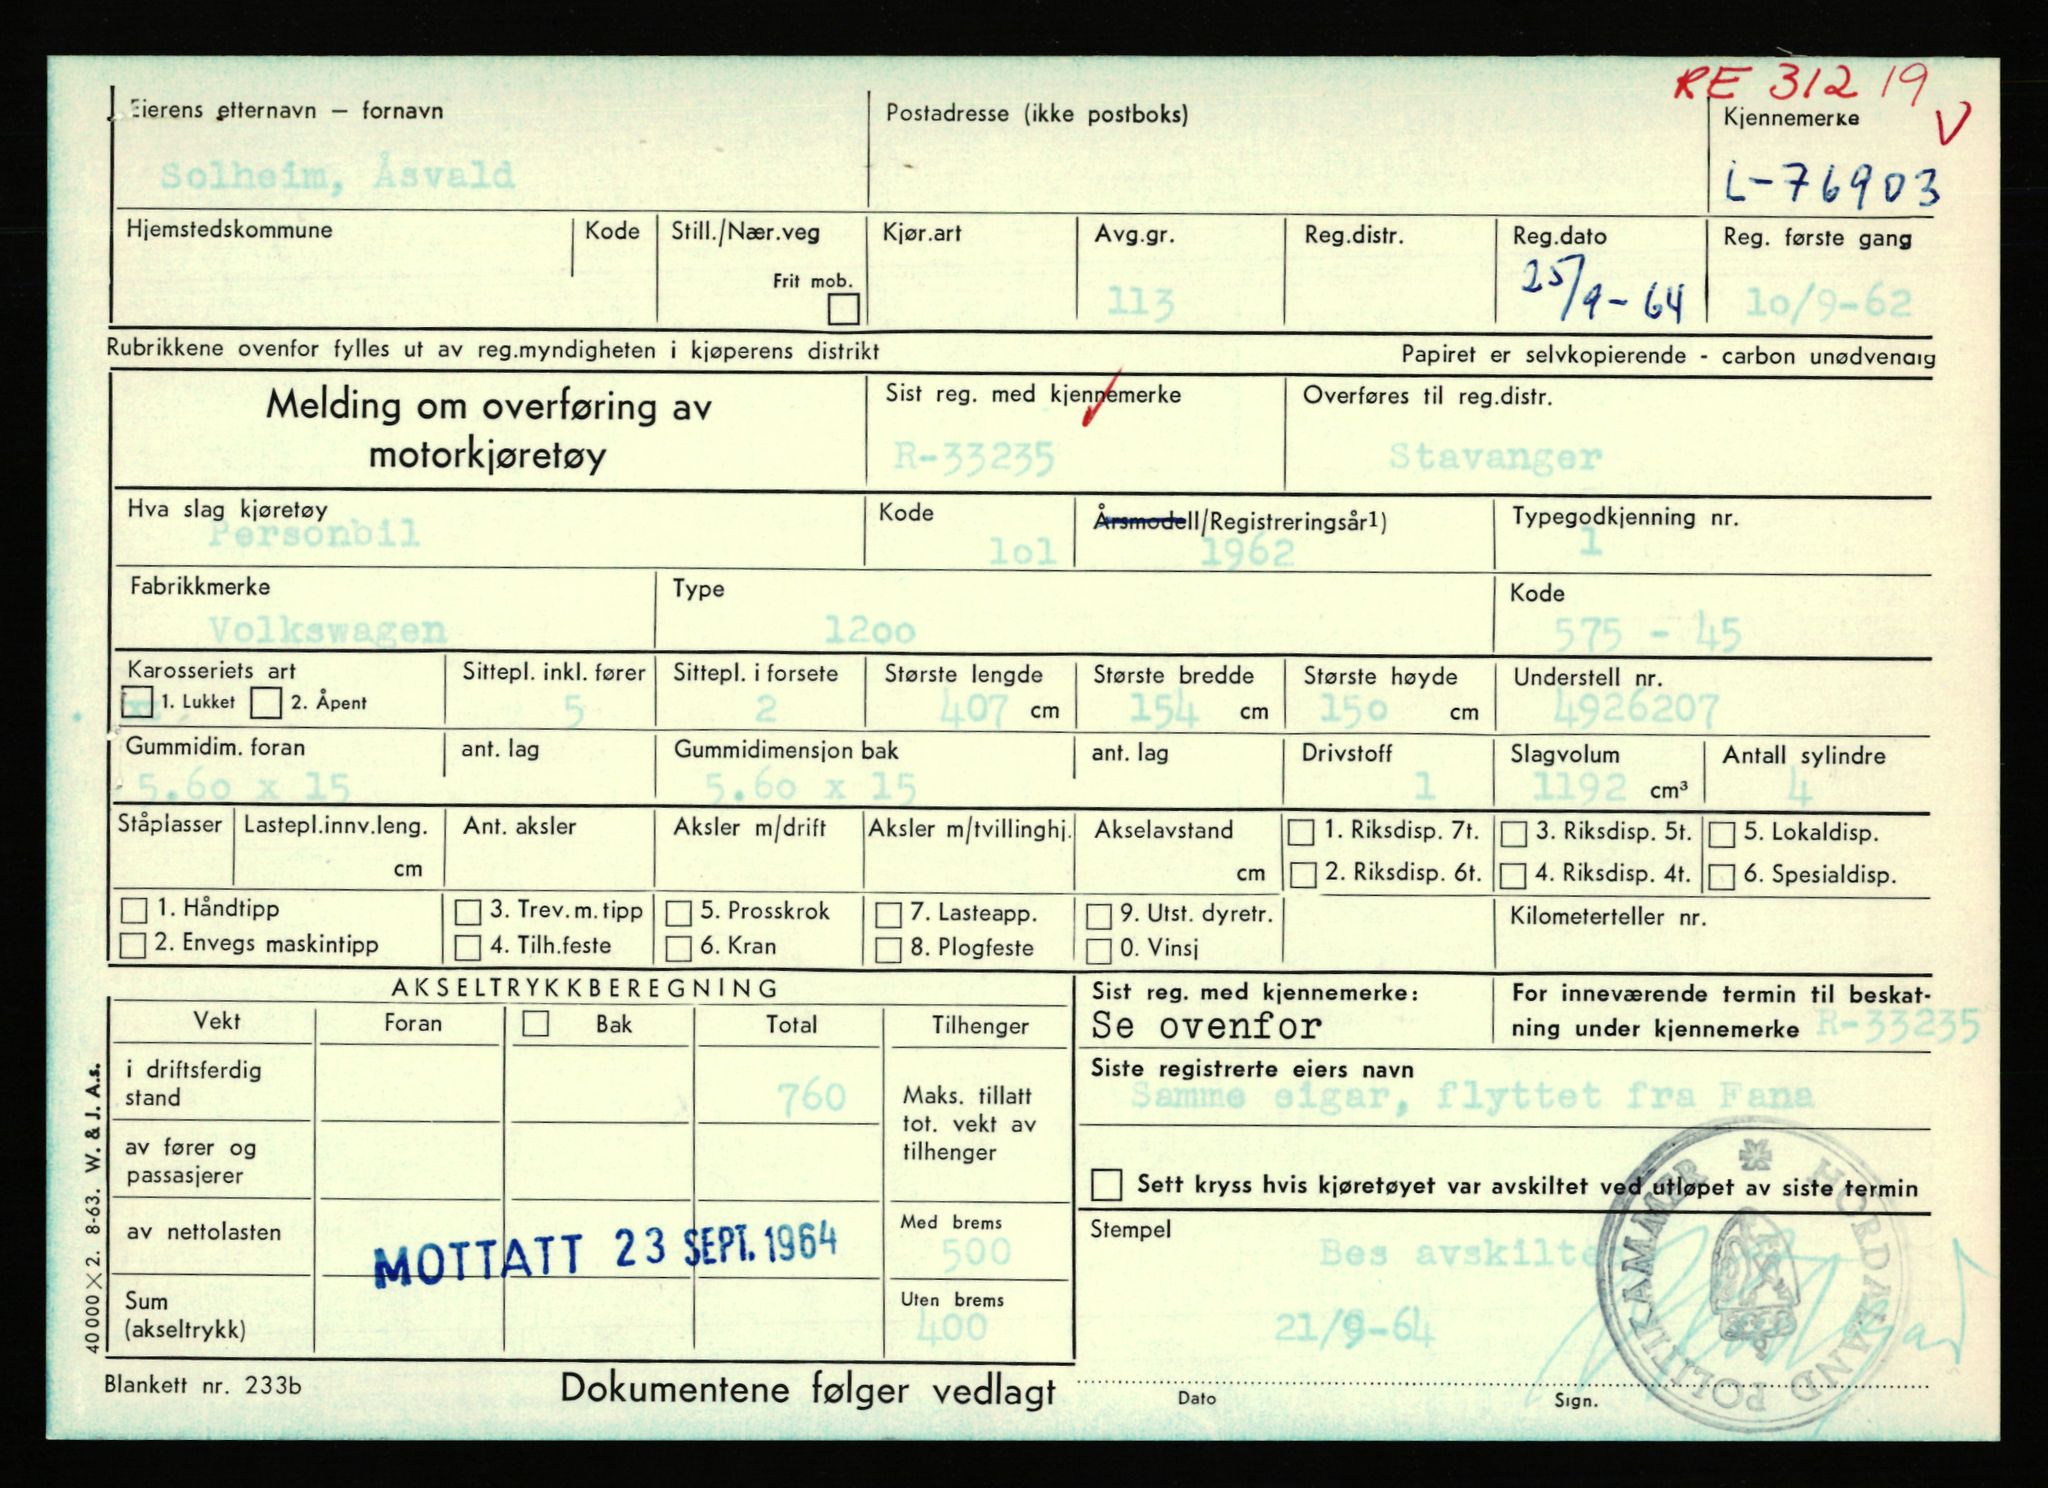 RE 31219
V
Eierens etternavn – fornavn
Postadresse (ikke postboks)
Kjennemerke
Solheim, Åsvald
L-76903
Hjemstedskommune
Kode
Still./Nær.veg
Kjør.art
Avg.gr.
Reg.distr.
Reg.dato
Reg. første gang
Frit mob.
113
25/9-64
10/9-62
Rubrikkene ovenfor fylles ut av reg.myndigheten i kjøperens distrikt
Papiret er selvkopierende - carbon unødvendig
Melding om overføring av
motorkjøretøy
Sist reg. med kjennemerke
Overføres til reg.distr.
R-33235
Stavanger
Hva slag kjøretøy
Kode
Årsmodell/Registreringsår1)
Typegodkjenning nr.
Personbil
lol
1962
1
Fabrikkmerke
Type
Kode
Volkswagen
1200
575 - 45
Karosseriets art
Sittepl. inkl. fører
Sittepl. i forsete
Største lengde
Største bredde
Største høyde
Understell nr.
xx
1. Lukket
2. Åpent
5
2
407 cm
154 cm
150 cm
4926207
Gummidim. foran
ant. lag
Gummidimensjon bak
ant. lag
Drivstoff
Slagvolum
Antall sylindre
5.60 x 15
5.60 x 15
1
1192 cm³
4
Ståplasser
Lastepl.innv.leng.
Ant. aksler
Aksler m/drift
Aksler m/tvillinghj.
Akselavstand
1. Riksdisp. 7t.
3. Riksdisp. 5t.
5. Lokaldisp.
cm
cm
2. Riksdisp. 6t.
4. Riksdisp. 4t.
6. Spesialdisp.
1. Håndtipp
3. Trev. m. tipp
5. Prosskrok
7. Lasteapp.
9. Utst. dyretr.
Kilometerteller nr.
2. Envegs maskintipp
4. Tilh.feste
6. Kran
8. Plogfeste
0. Vinsj
AKSELTRYKKBEREGNING
Sist reg. med kjennemerke:
For inneværende termin til beskat-
Vekt
Foran
Bak
Total
Tilhenger
Se ovenfor
ning under kjennemerke R-33235
i driftsferdig
stand
760
Maks. tillatt
tot. vekt av
tilhenger
Siste registrerte eiers navn
Samme eigar, flyttet fra Fana
av fører og
passasjerer
Sett kryss hvis kjøretøyet var avskiltet ved utløpet av siste termin
av nettolasten
MOTTATT 23 SEPT. 1964
Med brems
500
Stempel
Bes avskilte
HORDALAND POLITIKAMMER
Sum
(akseltrykk)
Uten brems
400
21/9-64
40 000 × 2. 8-63. W. & J. A.s.
Blankett nr. 233b
Dokumentene følger vedlagt
Dato
Sign.